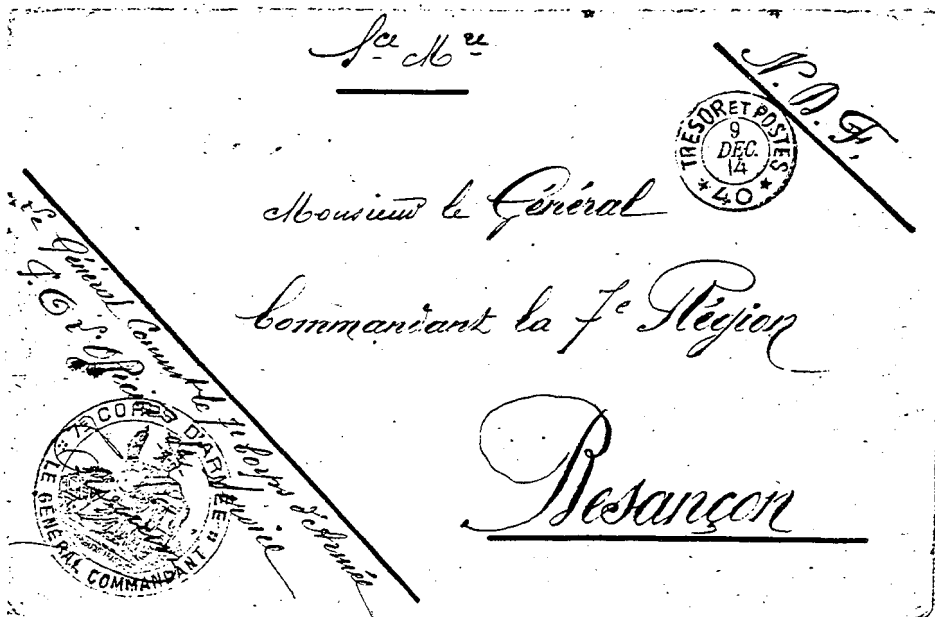 Sce Mre
N. D. F.
TRESOR ET POSTES
9
DEC.
14
* 40 *
Monsieur le Général
Commandant la 7e Région
Besançon
Le Général Commdt le 7e Corps d'Armée
P. O. L'Officier
7e CORPS D'ARMEE
LE GENERAL COMMANDANT